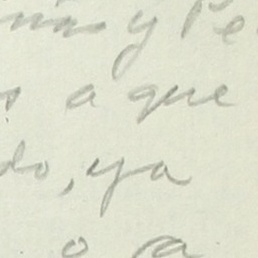 y Pe
s a que
do, ya
o a